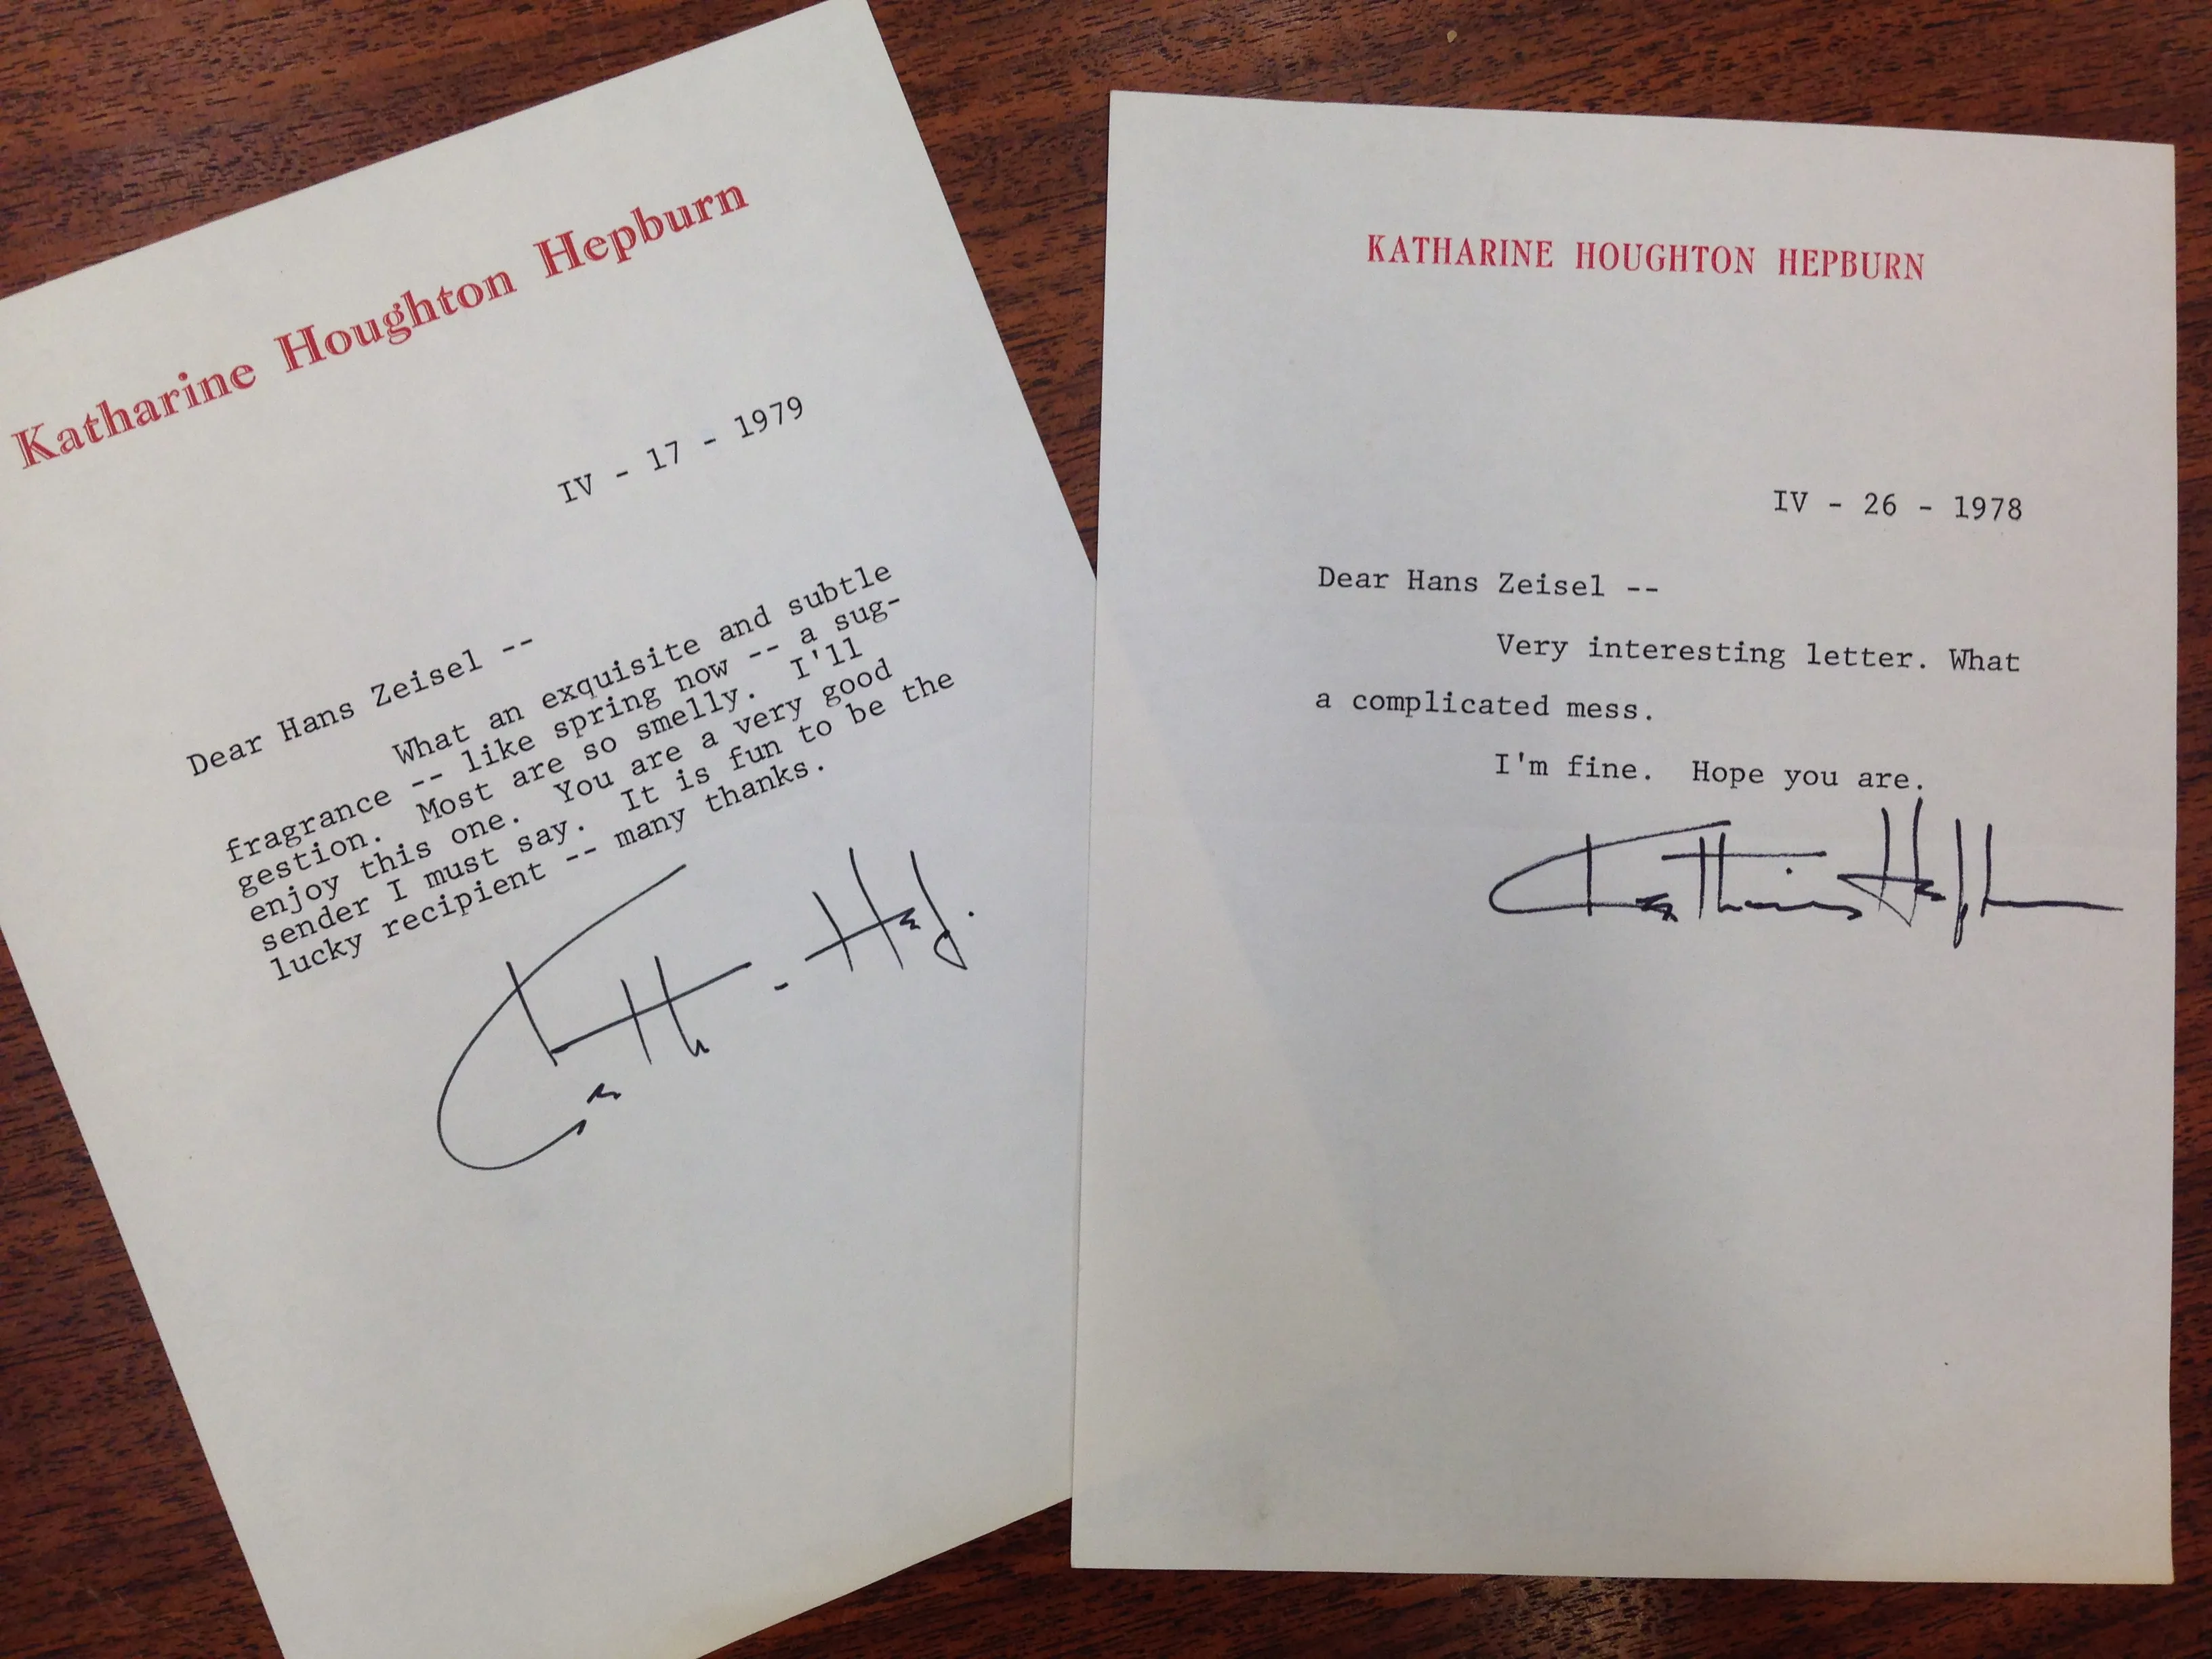 Katharine Houghton Hepburn
IV - 17 - 1979
Dear Hans Zeisel --
What an exquisite and subtle
fragrance -- like spring now -- a sug-
gestion. Most are so smelly. I'll
enjoy this one. You are a very good
sender I must say. It is fun to be the
lucky recipient -- many thanks.
Kath - Hep.
KATHARINE HOUGHTON HEPBURN
IV - 26 - 1978
Dear Hans Zeisel --
Very interesting letter. What
a complicated mess.
I'm fine. Hope you are.
Katharine Hepburn